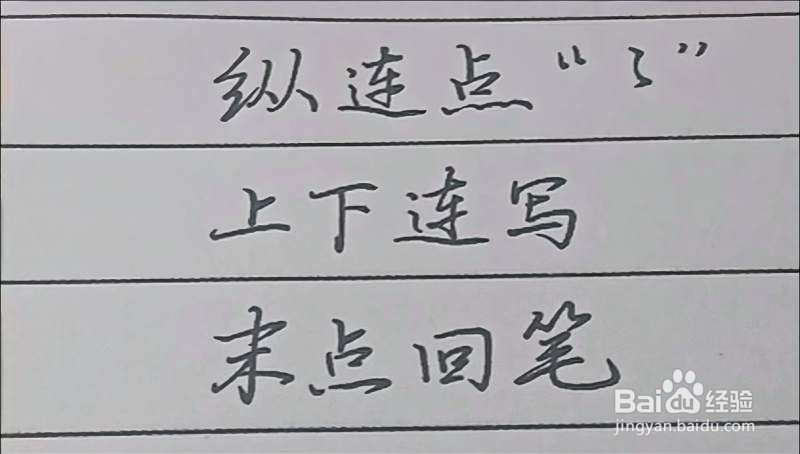 纵连点“⺀”
上下连写
末点回笔
Baidu经验
jingyan.baidu.com